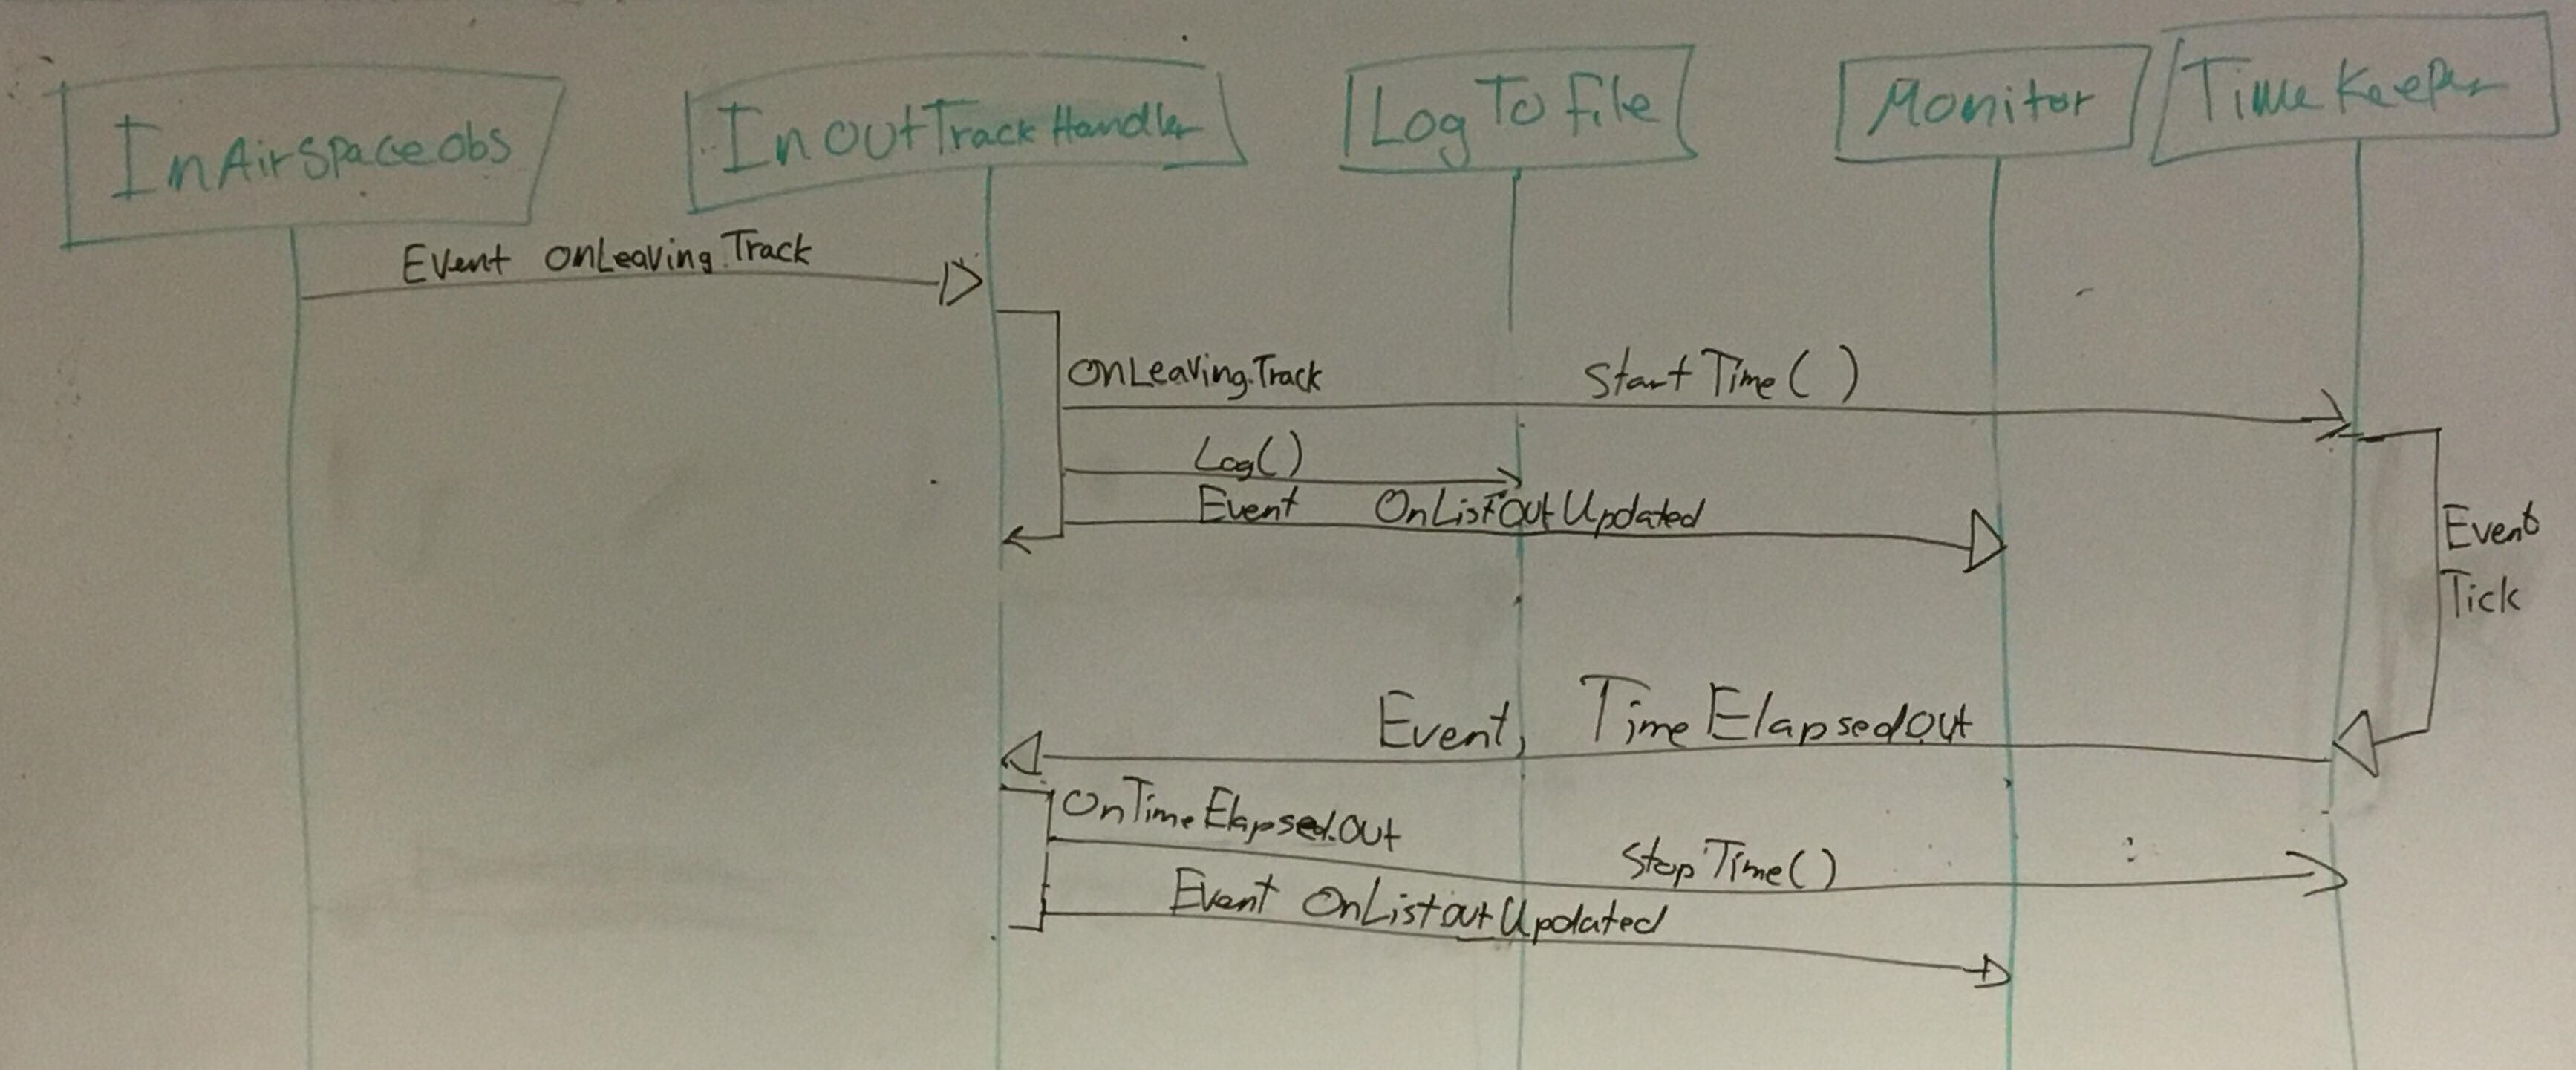 InAirSpaceobs
InOutTrackHandler
LogToFile
Monitor
TimeKeeper
Event onLeaving.Track
OnLeaving.Track
StartTime()
Log()
Event OnListOutUpdated
Event
Tick
Event, TimeElapsedOut
OnTimeElapsed.Out
StopTime()
Event OnListoutUpdated